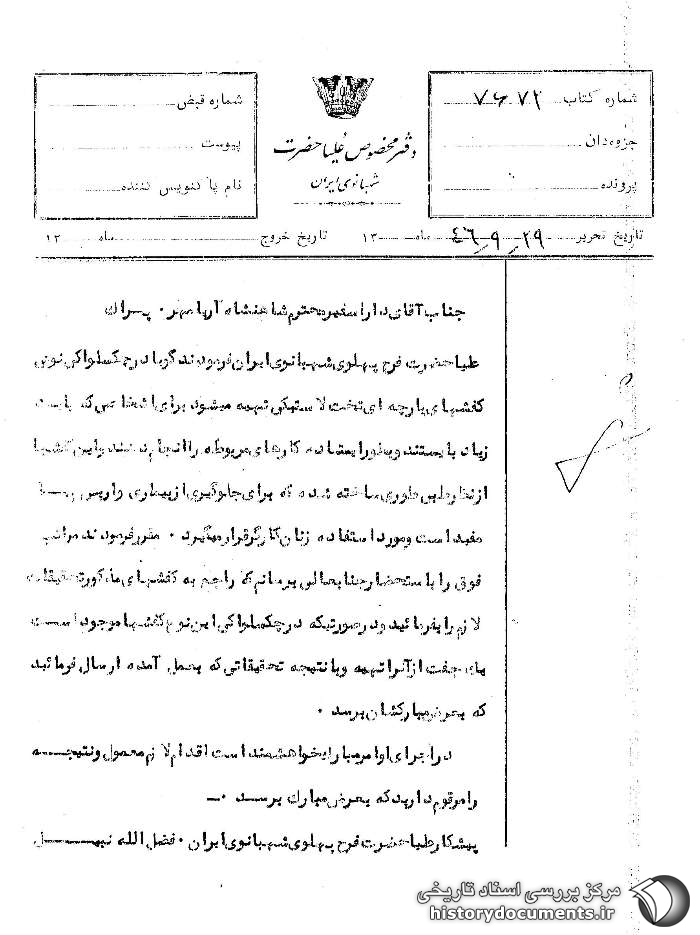 شماره کتاب ۷۶۷۲
جزوه‌دان
پرونده
دفتر مخصوص علیاحضرت
شهبانوی ایران
شماره قبض
پیوست
نام پاکنویس کننده
تاریخ تحریر ۲۹/۹/۴۶ ماه ۱۳ تاریخ خروج ماه ۱۳
جناب آقای دارا سفیر محترم شاهنشاه آریامهر ۰ پراگ
علیاحضرت فرح پهلوی شهبانوی ایران فرمودند گویا در چکسلواکی نوعی
کفشهای پارچه ای تخت لاستیکی تهیه میشود برای اشخاصی که باید
زیاد بایستند و بطور ایستاده کارهای مربوطه را انجام دهند و این کفشها
از نظر طبی طوری ساخته شده که برای جلوگیری از بیماری واریس پا
مفید است و مورد استفاده زنان کارگر قرار میگیرد ۰ مقرر فرمودند مراتب
فوق را باستحضار جنابعالی برسانم که راجع به کفشهای مذکور تحقیقات
لازم را بفرمائید و در صورتیکه در چکسلواکی این نوع کفشها موجود است
جفت از آنرا تهیه و با نتیجه تحقیقاتی که بعمل آمده ارسال فرمائید
که بعرض مبارکشان برسد ۰
در اجرای اوامر مبارک خواهشمند است اقدام لازم معمول و نتیجه
را مرقوم دارید که بعرض مبارک برسد ۰
پیشکار علیاحضرت فرح پهلوی شهبانوی ایران ۰ فضل الله نبیل
مرکز بررسی اسناد تاریخی
historydocuments.ir